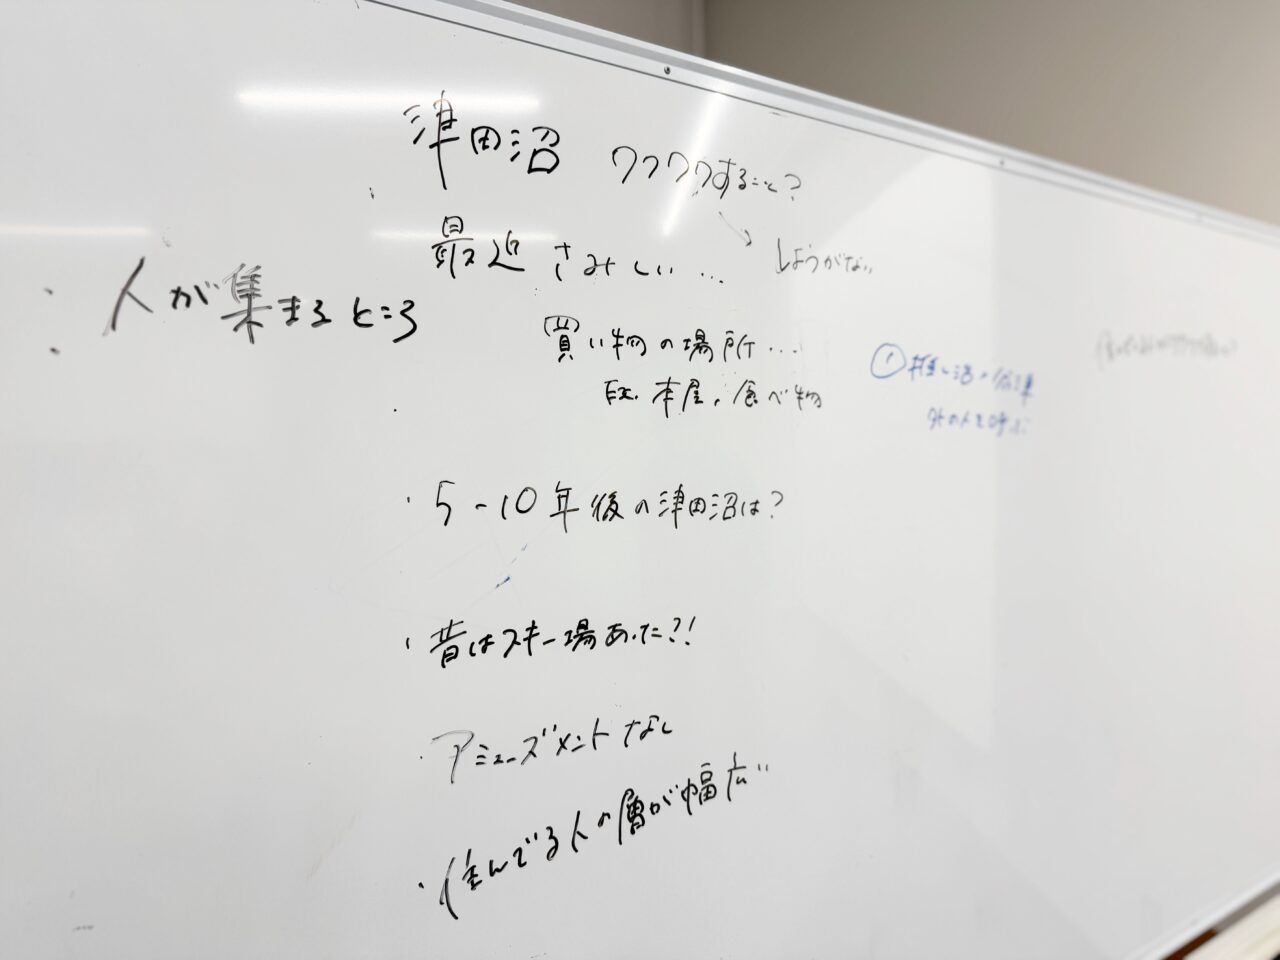 津田沼 ワクワクすること?
最近 さみしい… しょうがない
・人が集まるところ
買い物の場所…
Ex. 本屋、食べ物
①
外の人を呼ぶ
・5-10年後の津田沼は?
・昔はスキー場あった?!
・アミューズメントなし
・住んでる人の層が幅広